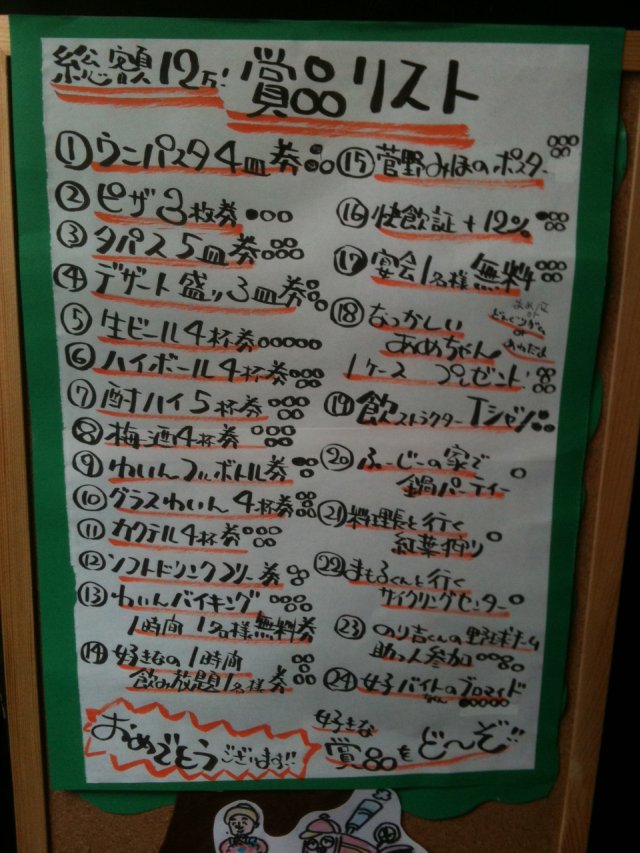 総額12万! 賞品リスト
①ウニパスタ4皿券
②ピザ3枚券
③タパス5皿券
④デザート盛り3皿券
⑤生ビール4杯券
⑥ハイボール4杯券
⑦酎ハイ5杯券
⑧梅酒4杯券
⑨わいんフルボトル券
⑩グラスわいん4杯券
⑪カクテル4杯券
⑫ソフトドリンクフリー券
⑬わいんバイキング
1時間1名様無料券
⑭好きなの1時間
飲み放題1名様券
⑮菅野みほのポスター
⑯快飲証+12%
⑰宴会1名様無料
⑱なつかしい
あめちゃん
1ケースプレゼント
⑲飲ストラクターTシャツ
⑳ふーじーの家で
鍋パーティー
㉑料理長と行く
紅葉狩り
㉒まもるくんと行く
サイクリングセンター
㉓のり吉くんの野球チーム
助っ人参加
㉔女子バイトのブロマイド
おめでとうございます!!
好きな
賞品をど〜ぞ!!